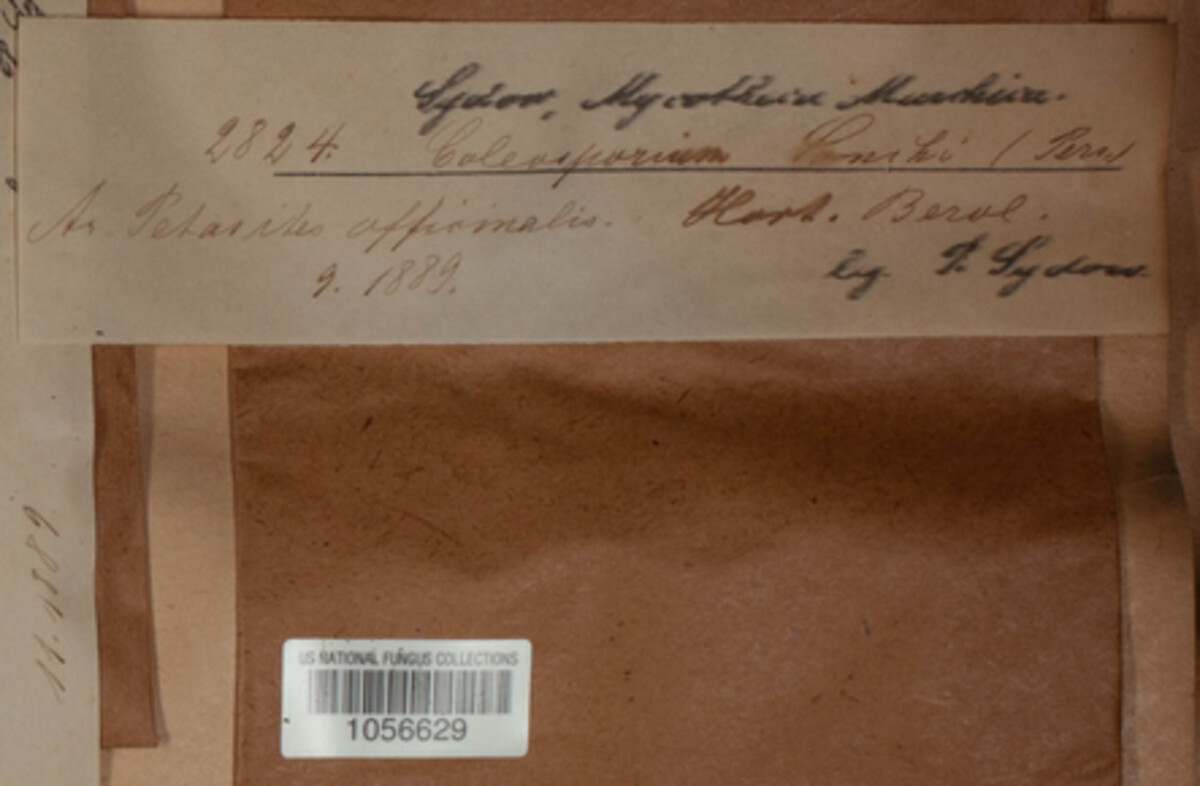 Sydow, Mycotheca Marchica.
2824. Coleosporium Sonchi (Pers.)
An Petasites officinalis. Hort. Berol.
9. 1889.
leg. P. Sydow
11. 1889
US NATIONAL FUNGUS COLLECTIONS
1056629